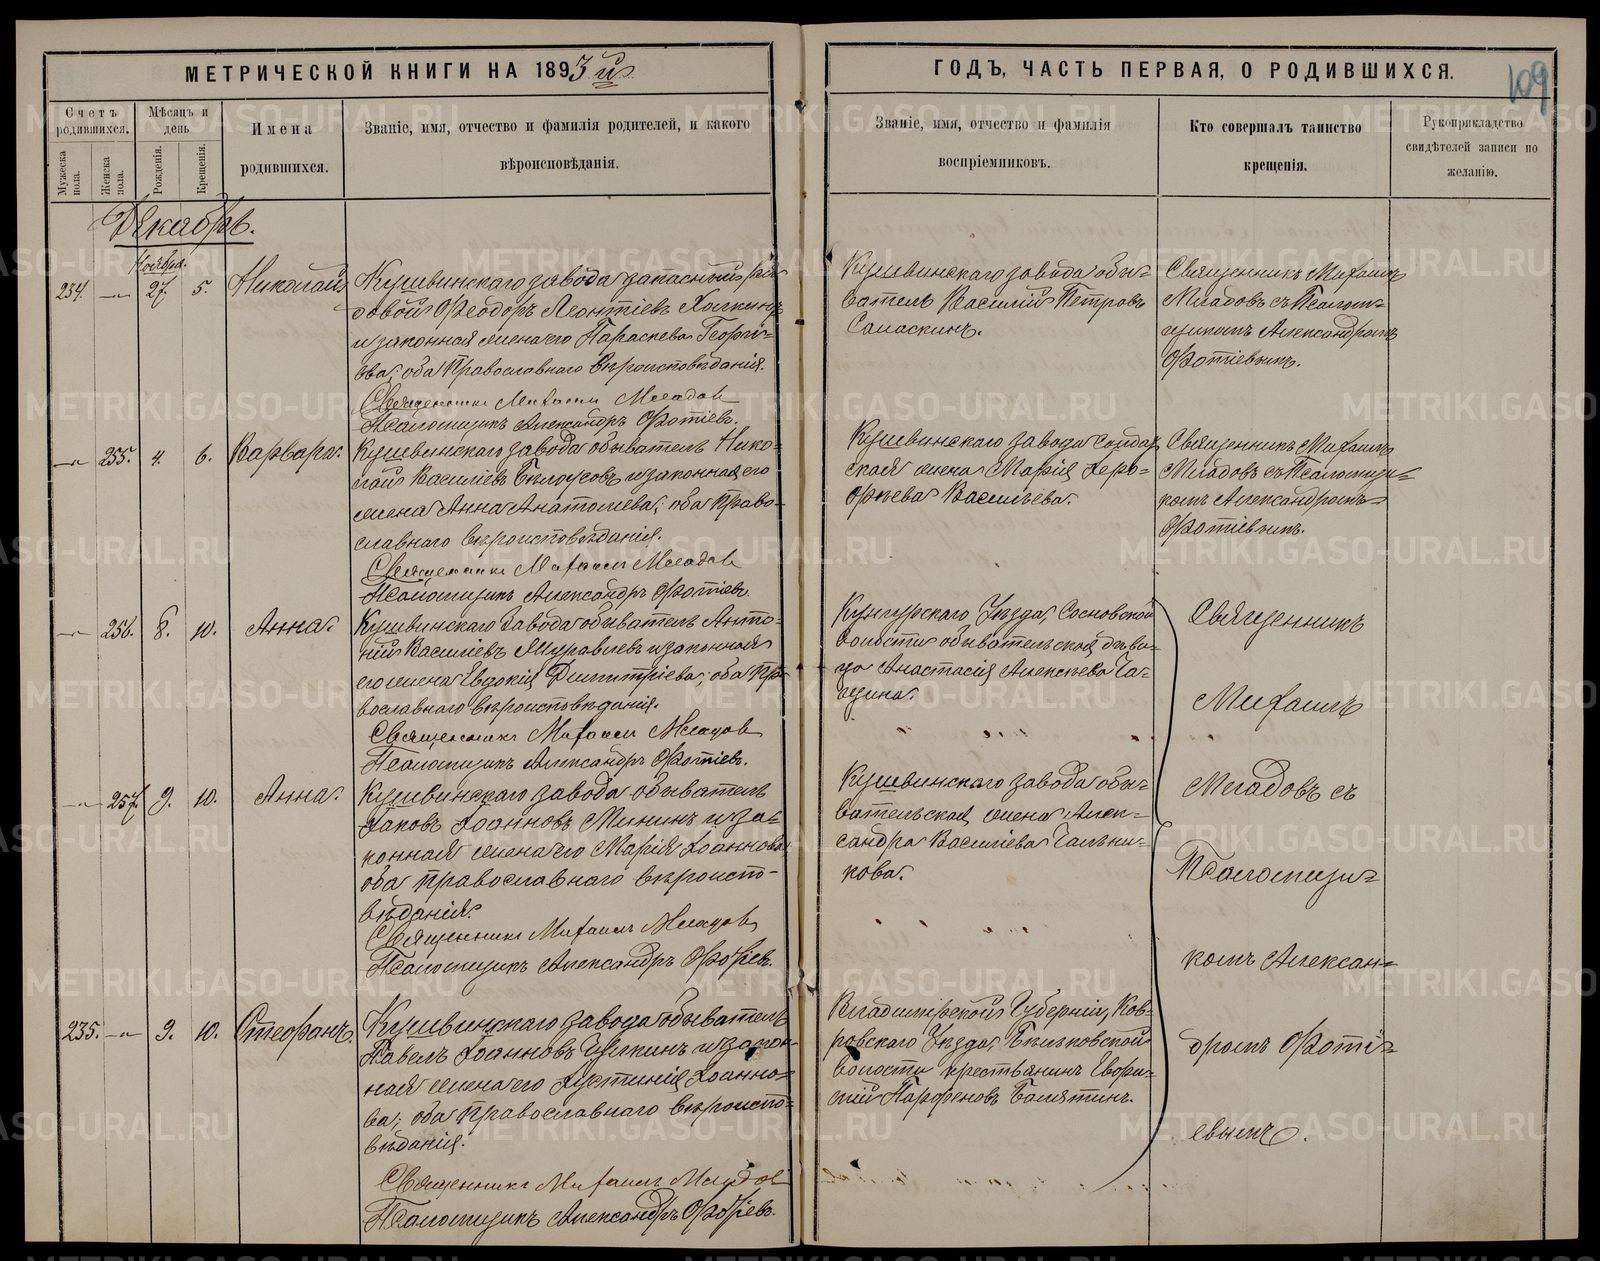 МЕТРИЧЕСКОЙ КНИГИ НА 1893 й
ГОДЪ, ЧАСТЬ ПЕРВАЯ, О РОДИВШИХСЯ.
109
Счетъ родившихся.
Мужеска пола.
Женска пола.
Мѣсяцъ и день
Рожденія.
Крещенія.
Имена
родившихся.
Званіе, имя, отчество и фамилія родителей, и какого
вѣроисповѣданія.
Званіе, имя, отчество и фамилія
воспріемниковъ.
Кто совершалъ таинство
крещенія.
Рукоприкладство
свидѣтелей записи по
желанію.
Декабрь.
Ноября.
234. 27. 5. Николай
Кушвинскаго завода запасный ря-
довой Ѳеодоръ Леонтіевъ
и законная жена его Параскева Георгі-
ева, оба Православнаго вѣроисповѣданія.
Священникъ Михаилъ Мегадов
Псаломщикъ Александръ Фотіевъ.
Кушвинскаго завода обы-
ватель Василій Петровъ
Саласкинъ.
Священникъ Михаилъ
Мегадовъ съ Псалом-
щикомъ Александромъ
Фотіевымъ.
255. 4. 6. Варвара.
Кушвинскаго завода обыватель Нико-
лай Василіевъ Бѣлоусовъ и законная его
жена Анна Анатоліева; оба Право-
славнаго вѣроисповѣданія.
Священникъ Михаилъ Мегадов
Псаломщикъ Александръ Фотіевъ.
Кушвинскаго завода солдат-
ская жена Марія
Васильева.
Священникъ Михаилъ
Мегадовъ съ Псаломщи-
комъ Александромъ
Фотіевымъ.
256. 8. 10. Анна.
Кушвинскаго завода обыватель Анто-
ній Василіевъ Журавлевъ и законная
его жена Евдокія Димитріева; оба Пра-
вославнаго вѣроисповѣданія.
Священникъ Михаилъ Мегадов
Псаломщикъ Александръ Фотіевъ.
Кунгурскаго Уѣзда, Сосновской
волости обывательская дѣви-
ца Анастасія Алексѣева
257. 9. 10. Анна.
Кушвинскаго завода обыватель
Іаковъ Іоанновъ Мининъ и за-
конная жена его Марія Іоаннова
оба православнаго вѣроиспо-
вѣданія.
Священникъ Михаилъ Мегадов
Псаломщикъ Александръ Фотіевъ.
Кушвинскаго завода обы-
вательская жена Алек-
сандра Василіева
235. 9. 10. Стефанъ.
Кушвинскаго завода обыватель
Павелъ Іоанновъ и закон-
ная жена его Іустинія Іоанно-
ва; оба православнаго вѣроиспо-
вѣданія.
Священникъ Михаилъ Мегадов
Псаломщикъ Александръ Фотіевъ.
Владимірской Губерніи, Ков-
ровскаго Уѣзда,
волости крестьянинъ
Парфеновъ
Священникъ
Михаилъ
Мегадовъ съ
Псаломщи-
комъ Алексан-
дромъ Фоті-
евымъ.
METRIKI.GASO-URAL.RU